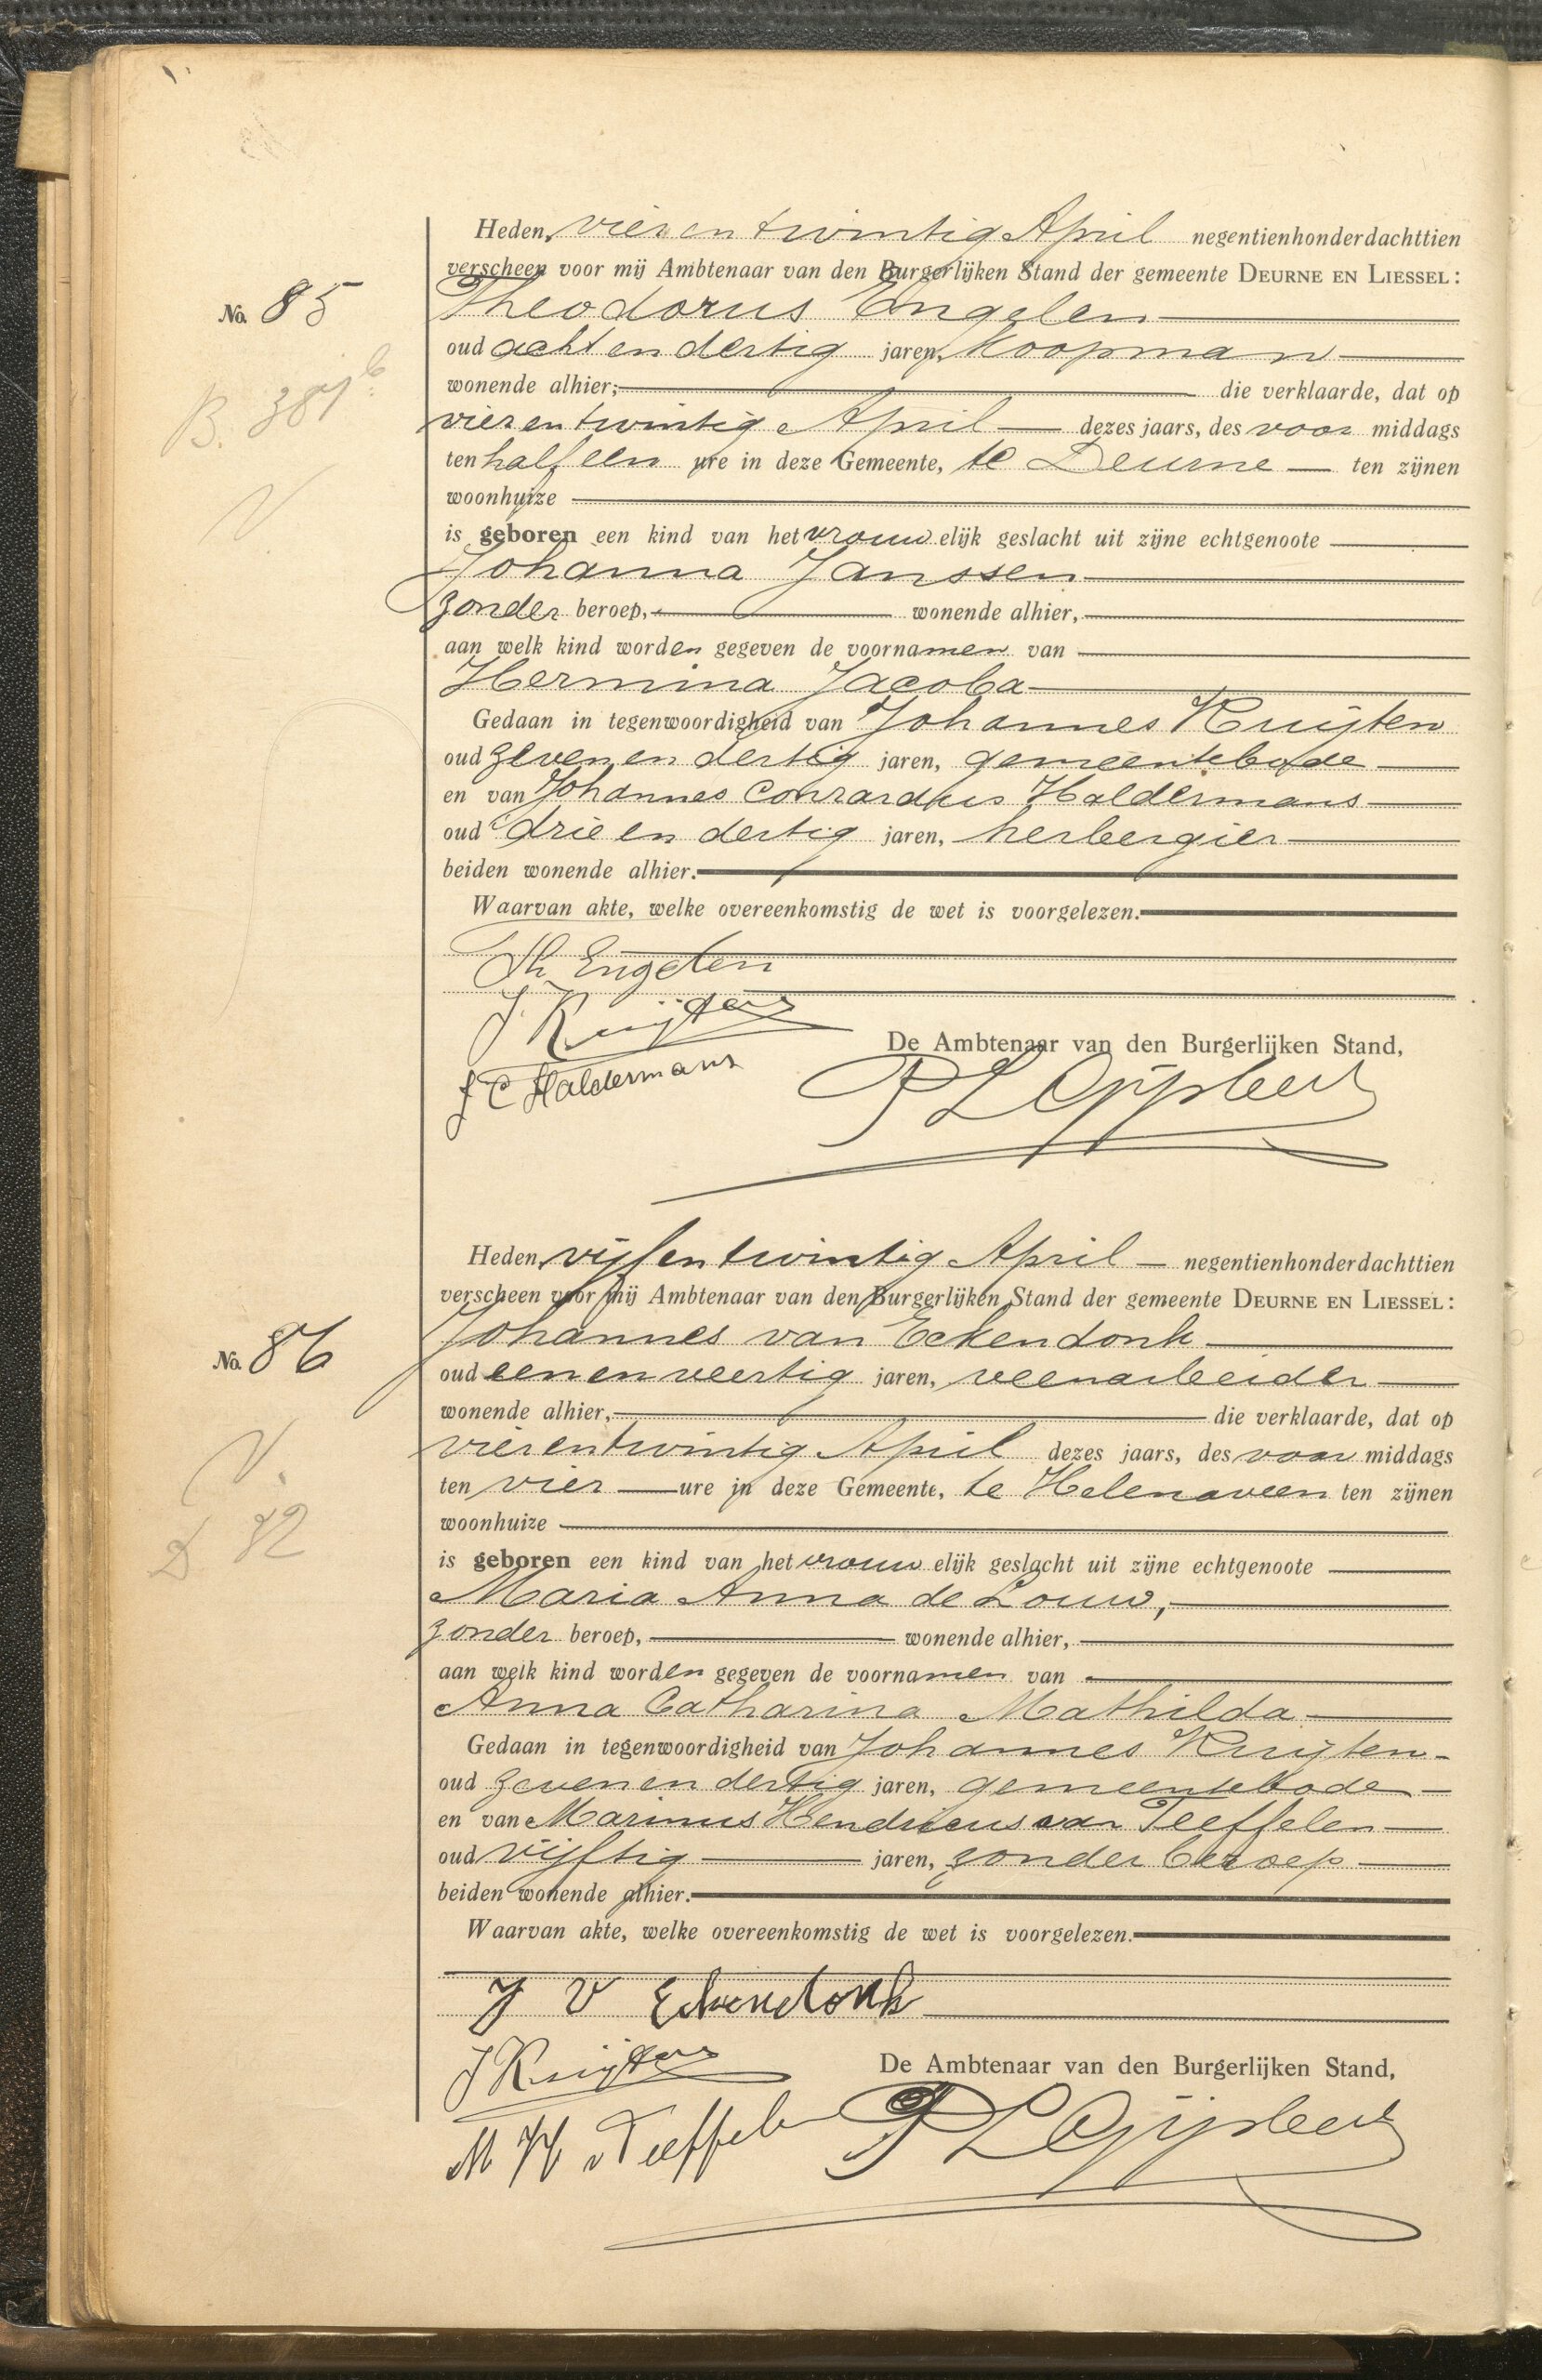 Heden, vier en twintig April negentienhonderdachttien
verscheen voor mij Ambtenaar van den Burgerlijken Stand der gemeente DEURNE EN LIESSEL:
No. 85
Theodorus Engelen
oud acht en dertig jaren, koopman
wonende alhier; die verklaarde, dat op
B. 381 b
vier en twintig April dezes jaars, des voor middags
ten half een ure in deze Gemeente, te Deurne ten zijnen
woonhuize
V.
is geboren een kind van het vrouwelijk geslacht uit zijne echtgenoote
Johanna Janssen
zonder beroep, wonende alhier,
aan welk kind worden gegeven de voornamen van
Hermina Jacoba
Gedaan in tegenwoordigheid van Johannes Kuijten
oud zeven en dertig jaren, gemeentebode
en van Johannes Conrardus Haldermans
oud drie en dertig jaren, herbergier
beiden wonende alhier.
Waarvan akte, welke overeenkomstig de wet is voorgelezen.
Th Engelen
J. Kuijten
De Ambtenaar van den Burgerlijken Stand,
J C Haldermans
Heden, vijf en twintig April negentienhonderdachttien
verscheen voor mij Ambtenaar van den Burgerlijken Stand der gemeente DEURNE EN LIESSEL:
No. 86
Johannes van Eckendonk
oud een en veertig jaren, veenarbeider
wonende alhier, die verklaarde, dat op
V.
vier en twintig April dezes jaars, des voor middags
ten vier ure in deze Gemeente, te Helenaveen ten zijnen
woonhuize
D 32
is geboren een kind van het vrouwelijk geslacht uit zijne echtgenoote
Maria Anna de Louw,
zonder beroep, wonende alhier,
aan welk kind worden gegeven de voornamen van
Anna Catharina Mathilda
Gedaan in tegenwoordigheid van Johannes Kuijten
oud zeven en dertig jaren, gemeentebode
en van Marinus Hendricus van Teeffelen
oud vijftig jaren, zonder beroep
beiden wonende alhier.
Waarvan akte, welke overeenkomstig de wet is voorgelezen.
J V Eckendonk
J Kuijten
De Ambtenaar van den Burgerlijken Stand,
M H v Teeffelen